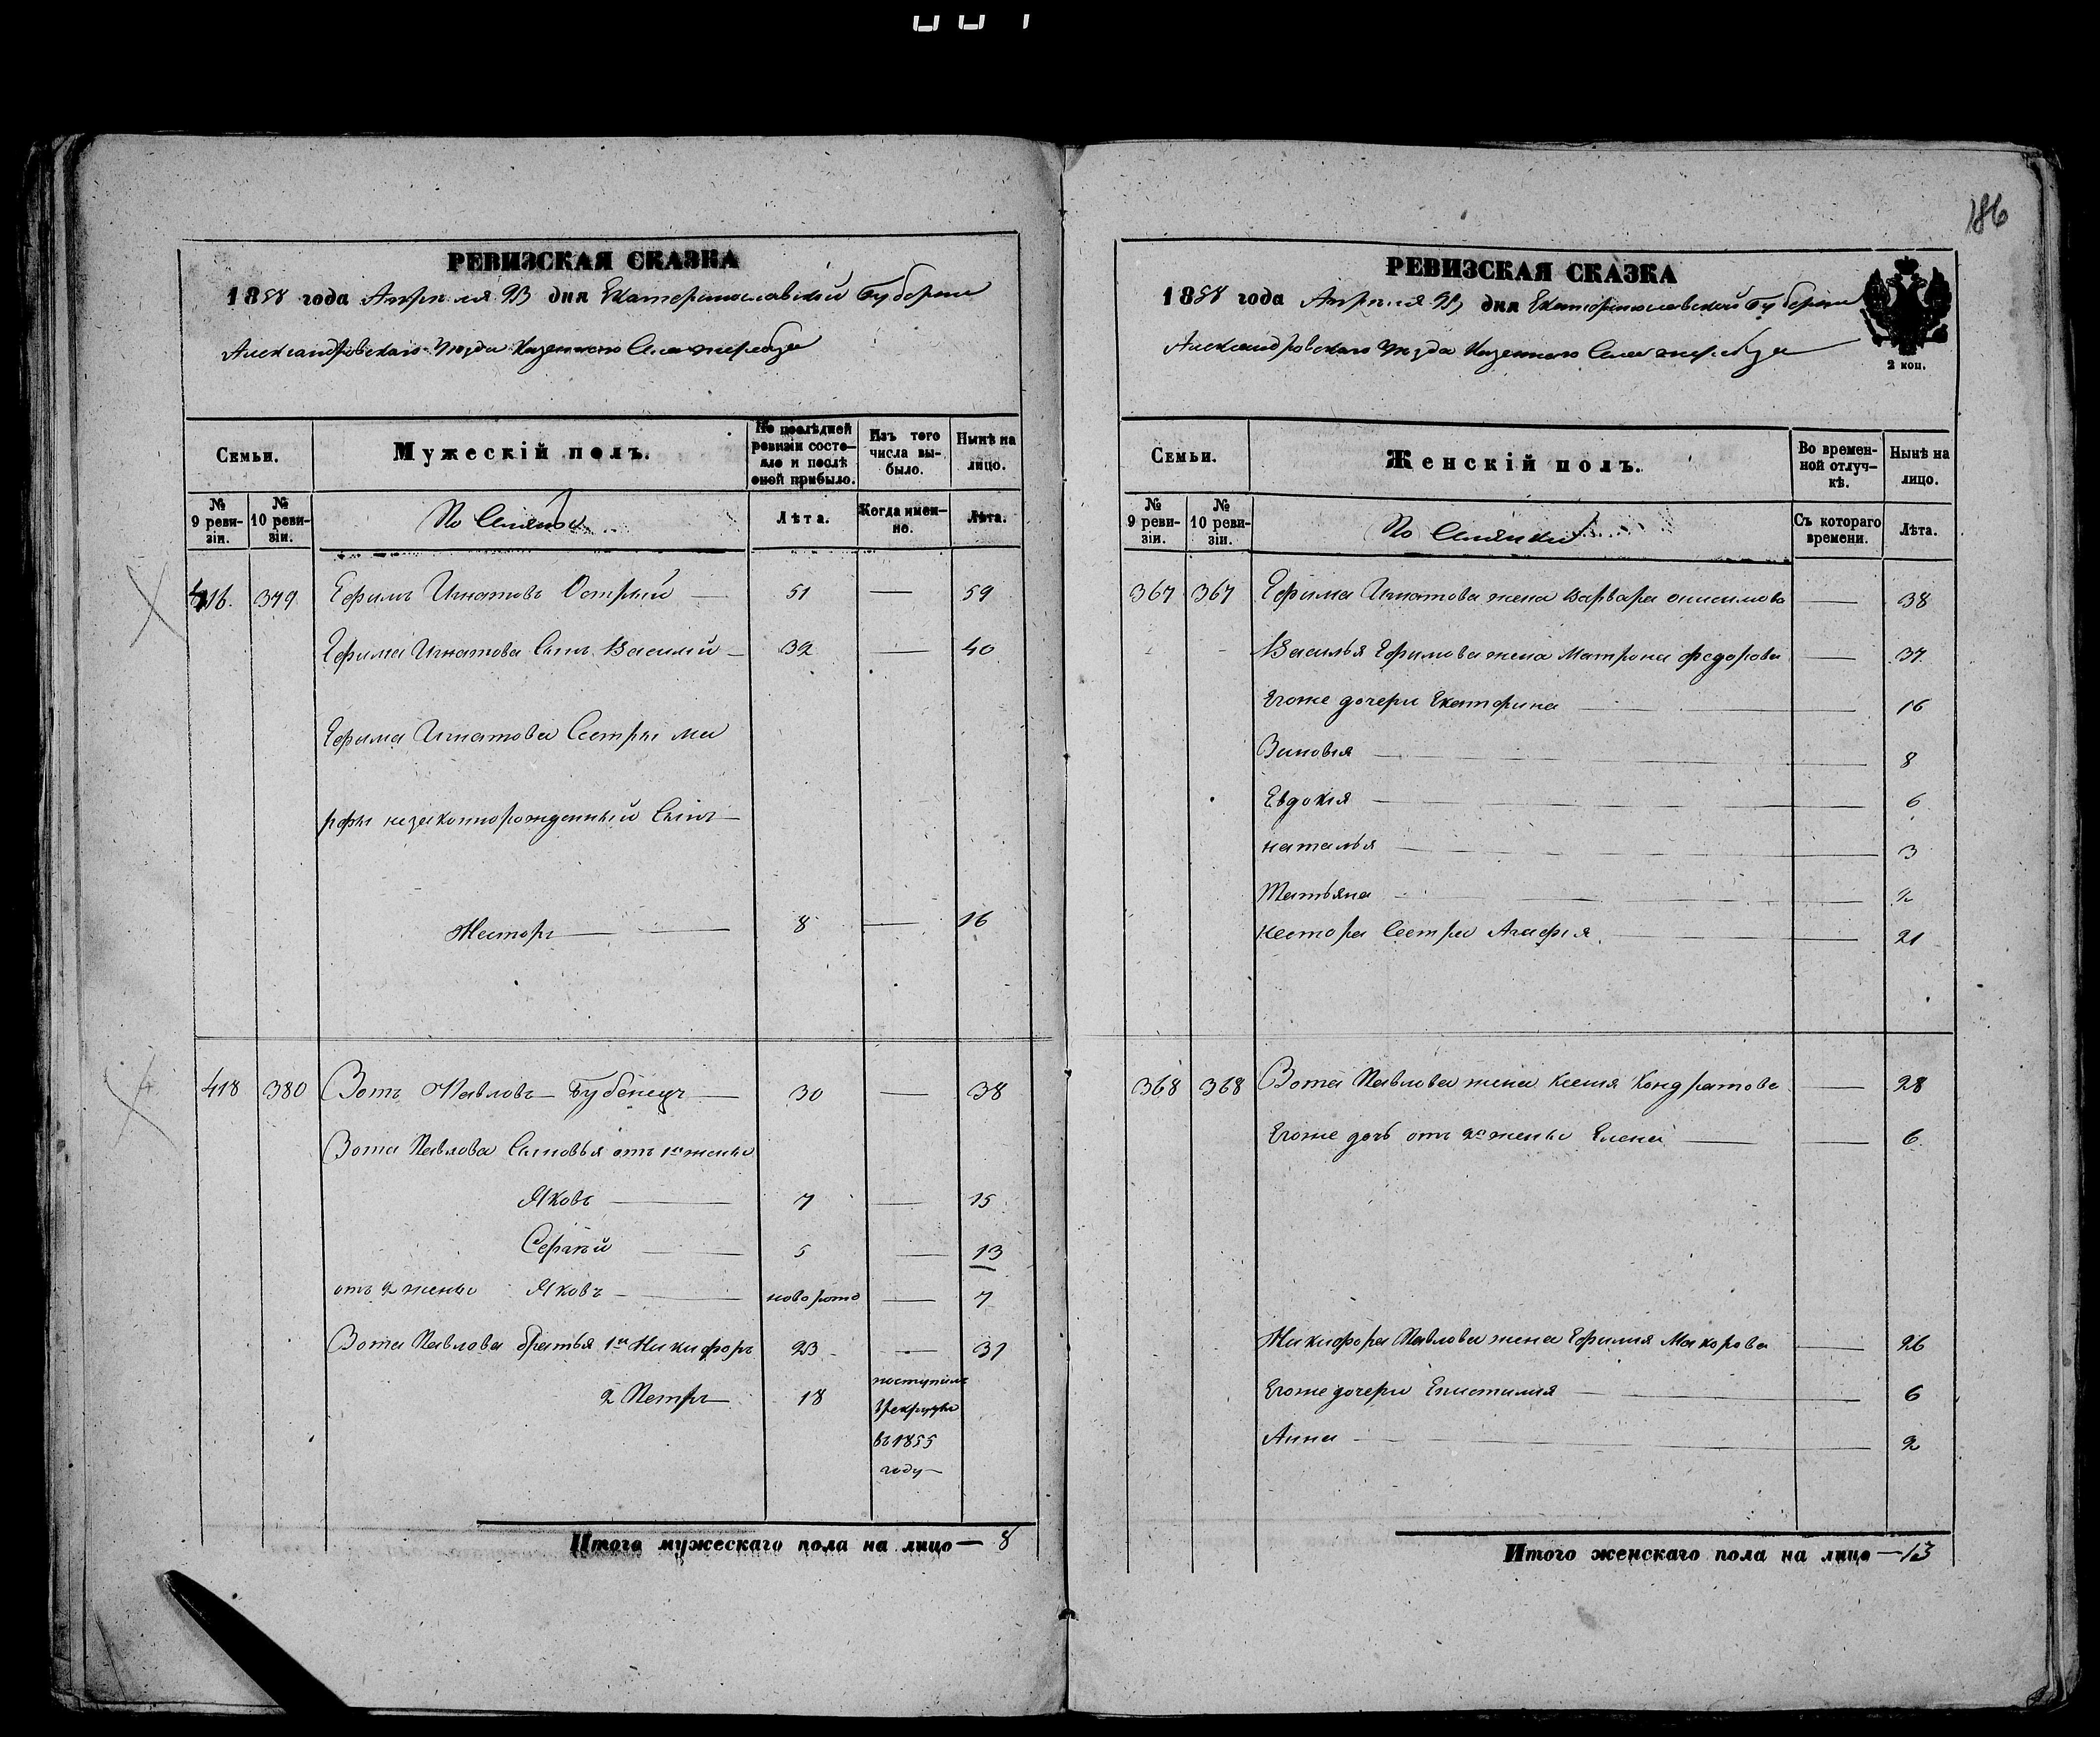 186
РЕВИЗСКАЯ СКАЗКА
1858 года Апреля 23 дня Екатеринославской Губернии
Александровскаго Уезда Казенного Села жеребца
Семьи.
Мужескій полъ.
По последней ревизіи состояло и послѣ оной прибыло.
Изъ того числа выбыло.
Нынѣ на лицо.
№ 9 ревизіи.
№ 10 ревизіи.
Лѣта.
Когда именно.
Лѣта.
416. 379 Ефимъ Игнатовъ Острый — 51 — 59
Ефима Игнатова Сынъ Василий — 32 — 40
Ефима Игнатова Сестры ма
рфы незаконнорожденный Сынъ —
Несторъ — 8 — 16
418 380 Зотъ Павловъ — Бубенецъ — 30 — 38
Зота Павлова Сыновья отъ 1й жены
Яковъ — 7 — 15
Сергѣй — 5 — 13
отъ 2 жены Яковъ — новорож — 7
Зота Павлова братья 1й Никифоръ 23 — 31
2 Петръ 18 поступилъ
врекруты
въ 1855
году —
Итого мужескаго пола на лицо — 8
РЕВИЗСКАЯ СКАЗКА
1858 года Апреля 23 дня Екатеринославской Губернии
Александровскаго Уезда Казенного Села жеребца
2 коп.
Семьи.
Женскій полъ.
Во временной отлучкѣ.
Нынѣ на лицо.
№ 9 ревизіи.
№ 10 ревизіи.
Съ котораго времени.
Лѣта.
367 367 Ефима Игнатова жена Варвара онисимова — 38
Василья Ефимова жена Матрона федорова — 37
Егоже дочери Екатерина — 16
Зиновия — 8
Евдокия — 6
наталья — 3
Татьяна —
нестора Сестра Агафия — 21
368 368 Зота Павлова жена Ксения Кондратова — 28
Егоже дочь отъ 2й жены Елена — 6
Никифора Павлова жена Ефимия Макорова — 26
Егоже дочери Епистимия — 6
Анна — 2
Итого женскаго пола на лицо — 13